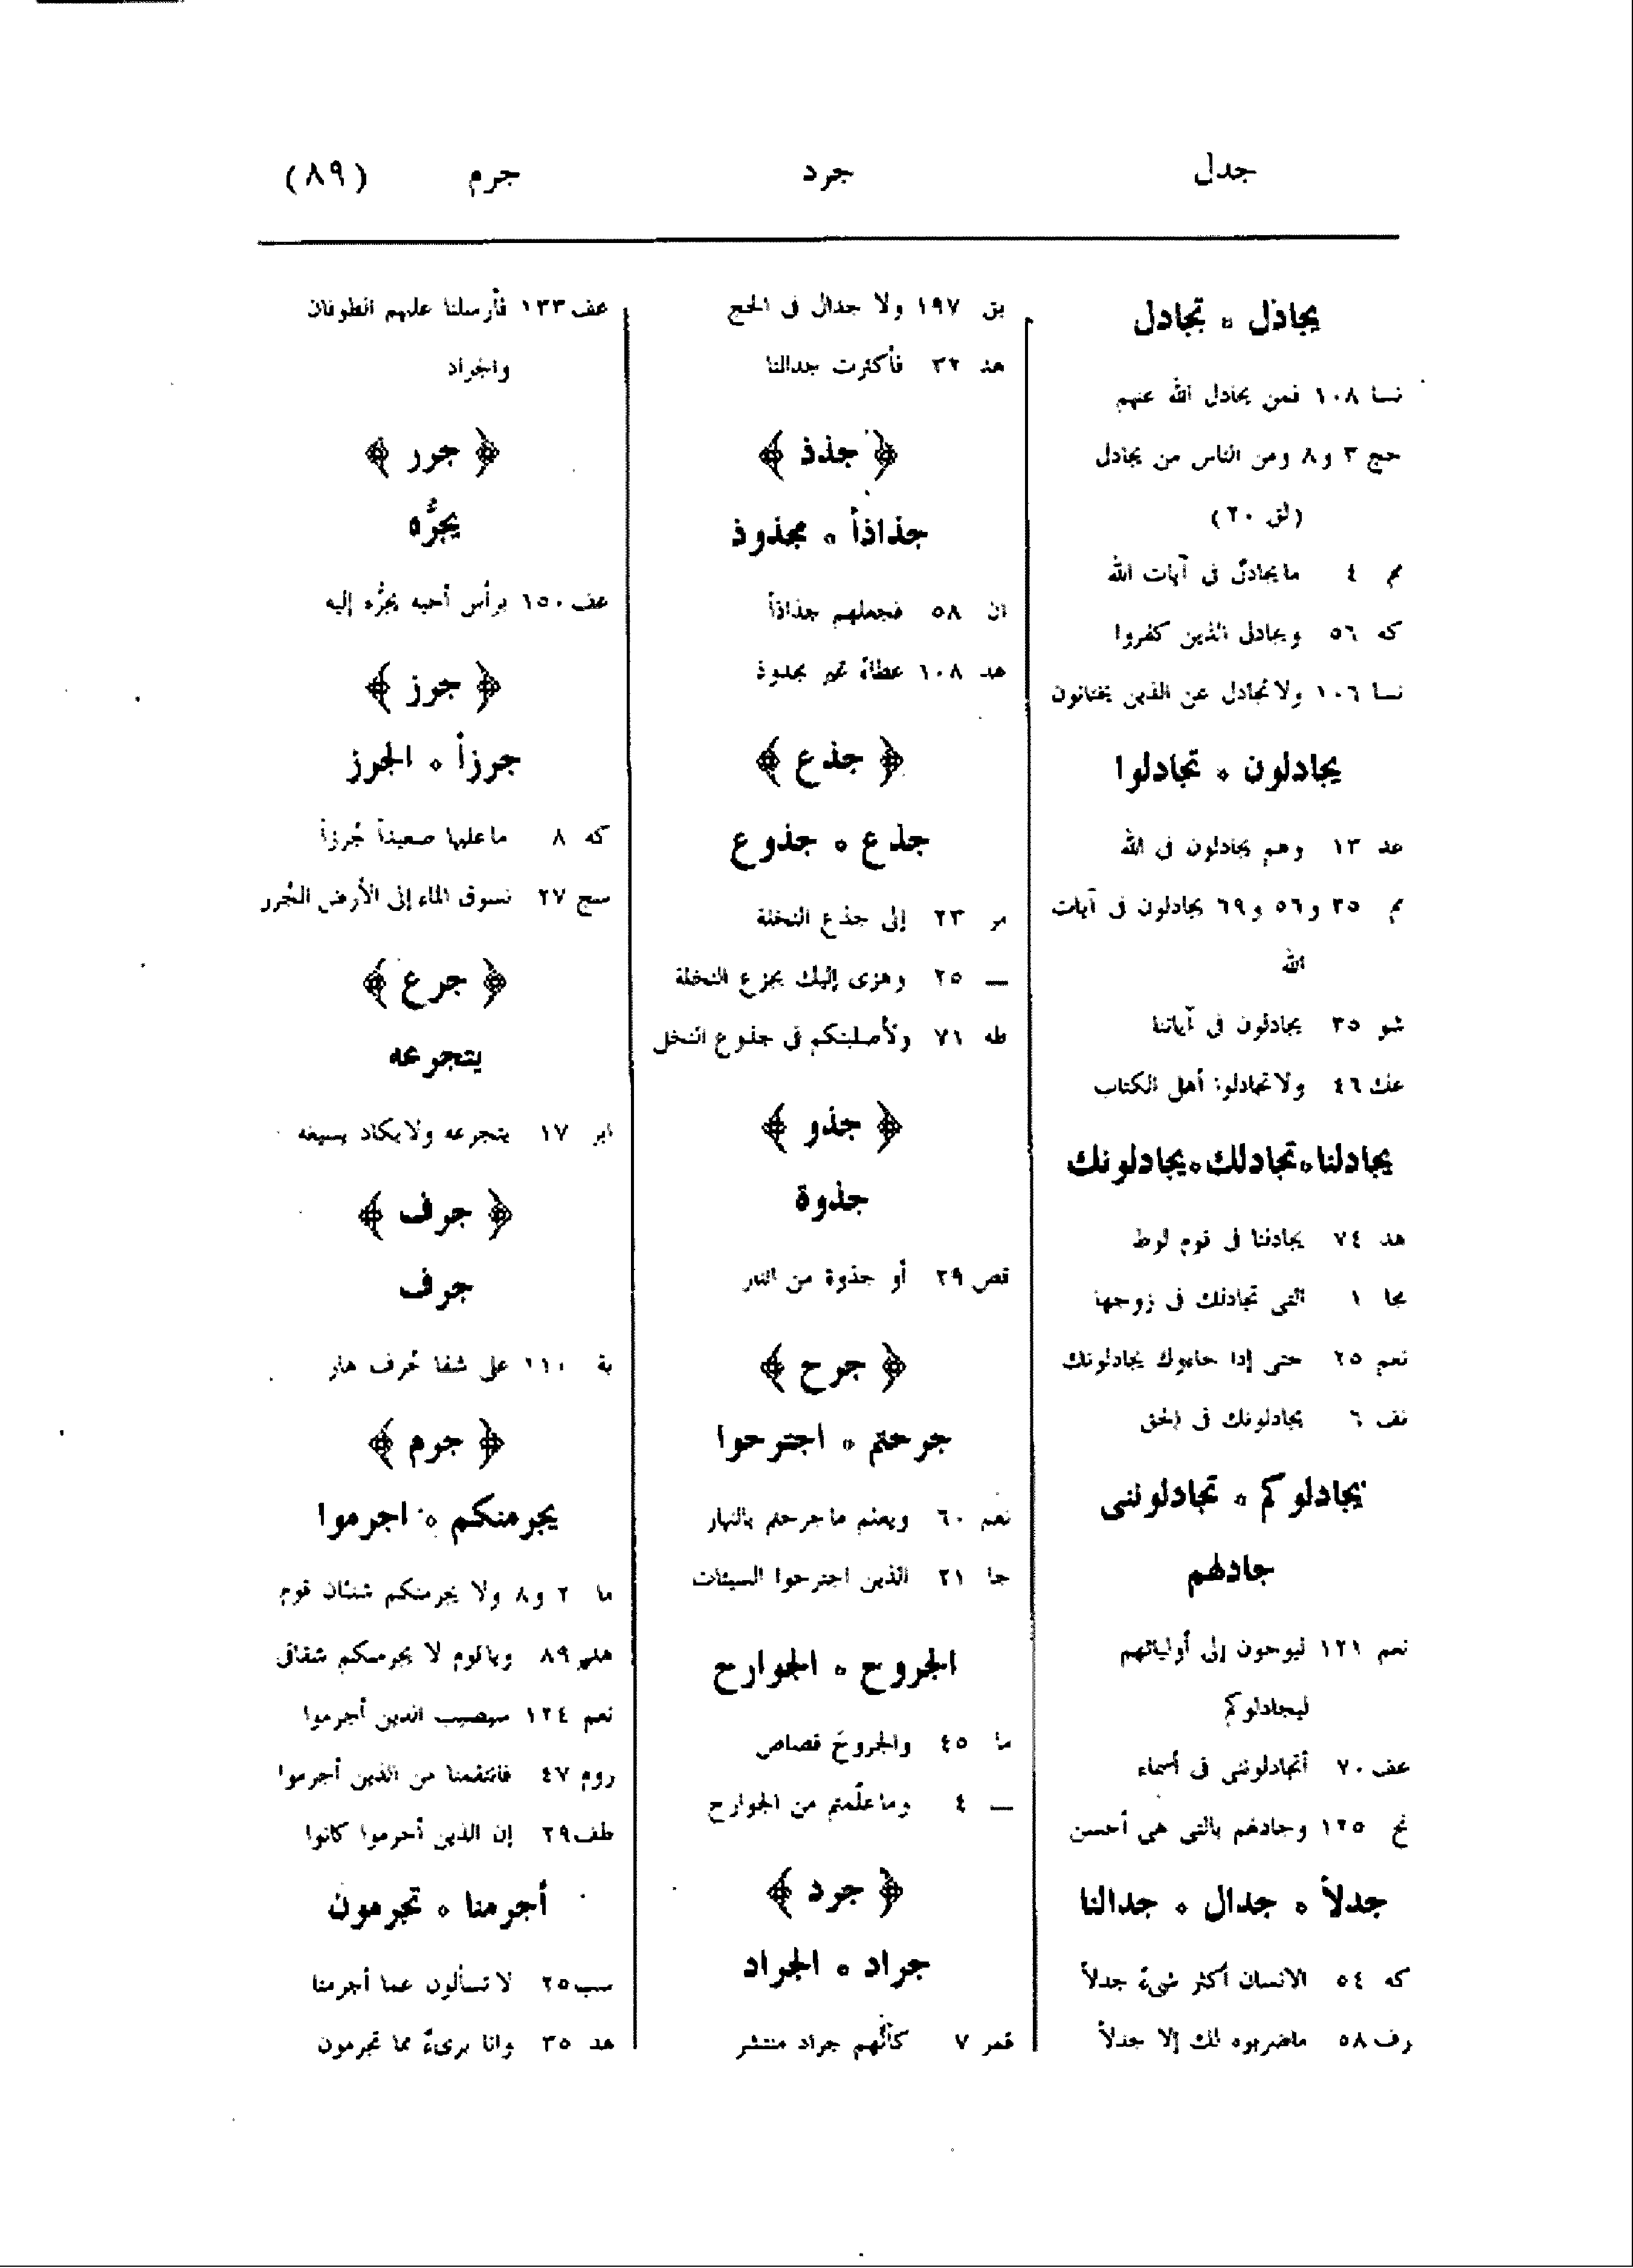 جدل جرد جرم (٨٩)
يجادل ٥ تجادل
نسا ١٠٨ فمن يجادل الله عنهم
حج ٣ و٨ ومن الناس من يجادل
(لق ٢٠)
مم ٤ مايجادل فى آيات الله
كه ٥٦ ويجادل الذين كفروا
نسا ١٠٦ ولاتجادل عن الذين يختانون
يجادلون ٥ تجادلوا
عد ١٣ وهم يجادلون فى الله
مم ٣٥ و٥٦ و٦٩ يجادلون فى آيات
الله
شو ٣٥ يجادلون فى آياتنا
عنك ٤٦ ولاتجادلوا أهل الكتاب
يجادلنا٥تجادلك٥يجادلونك
هد ٧٤ يجادلنا فى قوم لوط
مجا ١ التى تجادلك فى زوجها
نعم ٢٥ حتى إذا جاءوك يجادلونك
نف ٦ يجادلونك فى الحق
يجادلوكم ٥ تجادلوننى
جادلهم
نعم ١٢١ ليوحون إلى أوليائهم
ليجادلوكم
عف ٧٠ أتجادلوننى فى أسماء
نح ١٢٥ وجادلهم بالتى هى أحسن
جدلاً ٥ جدال ٥ جدالنا
كه ٥٤ الانسان أكثر شىءٍ جدلاً
زف ٥٨ ماضربوه لك إلا جدلاً
بق ١٩٧ ولا جدال فى الحج
هد ٣٢ فأكثرت جدالنا
﴿ جذذ ﴾
جذاذاً ٥ مجذوذ
ان ٥٨ فجعلهم جذاذاً
هد ١٠٨ عطاءً غير مجذوذ
﴿ جذع ﴾
جذع ٥ جذوع
مر ٢٣ إلى جذع النخلة
— ٢٥ وهزى إليك بجزع النخلة
طه ٧١ ولأصلبنكم فى جذوع النخل
﴿ جذو ﴾
جذوة
قص ٢٩ أو جذوة من النار
﴿ جرح ﴾
جرحتم ٥ اجترحوا
نعم ٦٠ ويعلم ماجرحتم بالنهار
جا ٢١ الذين اجترحوا السيئات
الجروح ٥ الجوارح
ما ٤٥ والجروحَ قصاص
— ٤ وماعلّمتم من الجوارح
﴿ جرد ﴾
جراد ٥ الجراد
قمر ٧ كأنّهم جراد منتشر
عف ١٣٣ فأرسلنا عليهم الطوفان
والجراد
﴿ جرر ﴾
يجرُّه
عف ١٥٠ برأس أخيه يجرُّه إليه
﴿ جرز ﴾
جرزاً ٥ الجرز
كه ٨ ماعليها صعيداً جُرزاً
سج ٢٧ نسوق الماء إلى الأرض الجُرز
﴿ جرع ﴾
يتجرعه
ابر ١٧ يتجرعه ولايكاد يسيغه
﴿ جرف ﴾
جرف
بة ١١٠ على شفا جُرف هار
﴿ جرم ﴾
يجرمنكم ٥ اجرموا
ما ٢ و٨ ولا يجرمنكم شنئان قوم
هد ٨٩ وياقوم لا يجرمنكم شقاقى
نعم ١٢٤ سيصيب الذين أجرموا
روم ٤٧ فانتقمنا من الذين أجرموا
طف٢٩ إن الذين أجرموا كانوا
أجرمنا ٥ تجرمون
سب٢٥ لاتسألون عما أجرمنا
هد ٣٥ وانا برىءٌ مما تجرمون